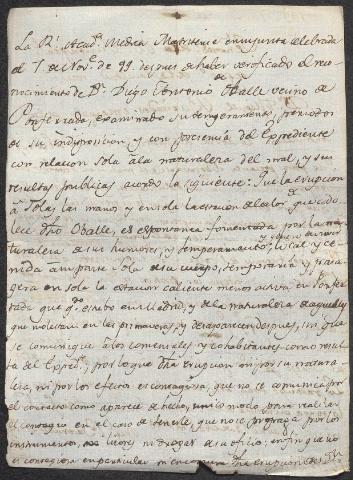 La Rl. Acada. Medica Matritense en junta celebrada
el 7 de Nove. de 99 despues de haber verificado el reco-
nocimiento de Dn. Diego Antonio de Oballe vecino de
Ponferrada, examinado su temperamento, periodos
de su indisposicion y con presencia del Expediente
con relacion sola à la naturaleza del mal, y sus
resultas publicas, acordo lo siguiente: Que la erupcion
à solas las manos y en sola la estacion de calor qe. pade
lece dho Oballe, es espontanea fomentada por la na-
turaleza de sus humores, y temperamento, local, y ce-
ñida a una parte sola de su cuerpo, temporaria, y pasa-
gera en sola la estacion caliente menos activa en Ponfe-
rrada qe. quando estubo en Madrid, y de la naturaleza de aquellas
que molestan en las primaveras, y desaparecen despues, sin que
se comunique à los comensales, y cohabitantes como resul-
ta del Expedte., por lo que dha erupcion ni por su natura-
leza, ni por los efectos es contagiosa, que no se comunica por
el contacto como aparece de hecho, unico modo para realizar
el contagio en el caso de tenerle, que no se propaga por los
instrumentos, licores ni drogas de su oficio, en fin que no
es contagiosa en particular ni en comun dha erupcion